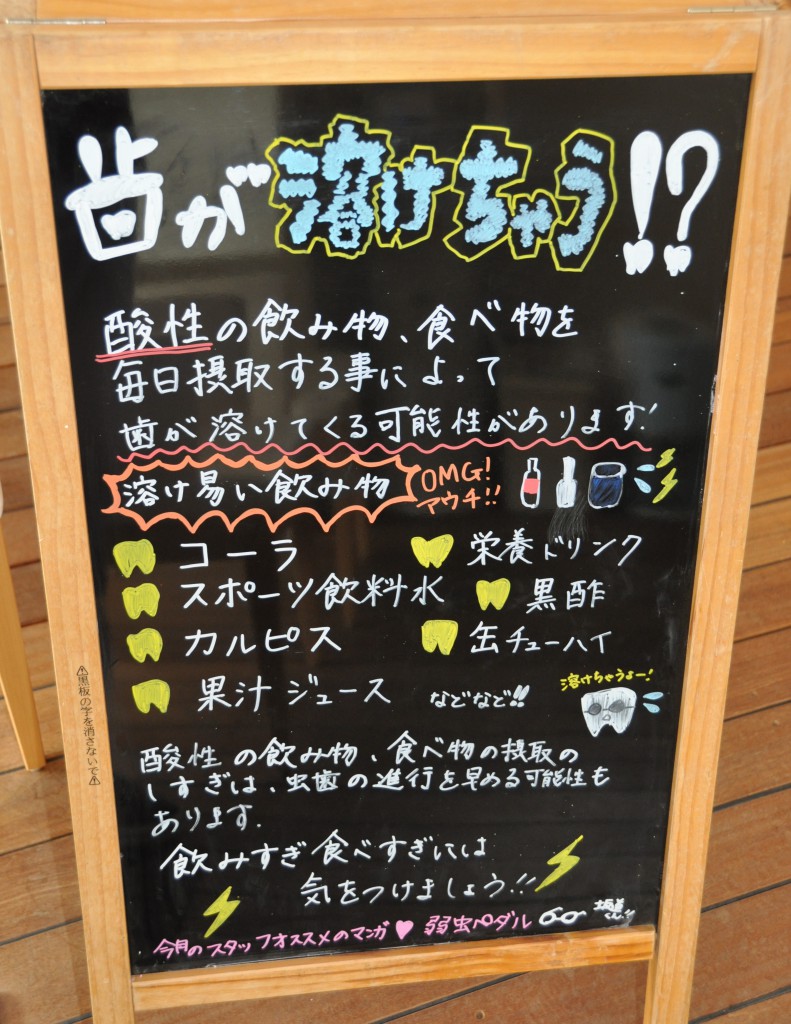 歯が溶けちゃう!?
酸性の飲み物、食べ物を
毎日摂取する事によって
歯が溶けてくる可能性があります!
溶け易い飲み物
OMG!
アウチ!!
コーラ
栄養ドリンク
スポーツ飲料水
黒酢
カルピス
缶チューハイ
果汁ジュース
などなど!!
溶けちゃうよー!
酸性の飲み物、食べ物の摂取の
しすぎは、虫歯の進行を早める可能性も
あります.
飲みすぎ食べすぎには
気をつけましょう!!
今月のスタッフオススメのマンガ♥弱虫ペダル
坂道くん
⚠黒板の字を消さないで⚠